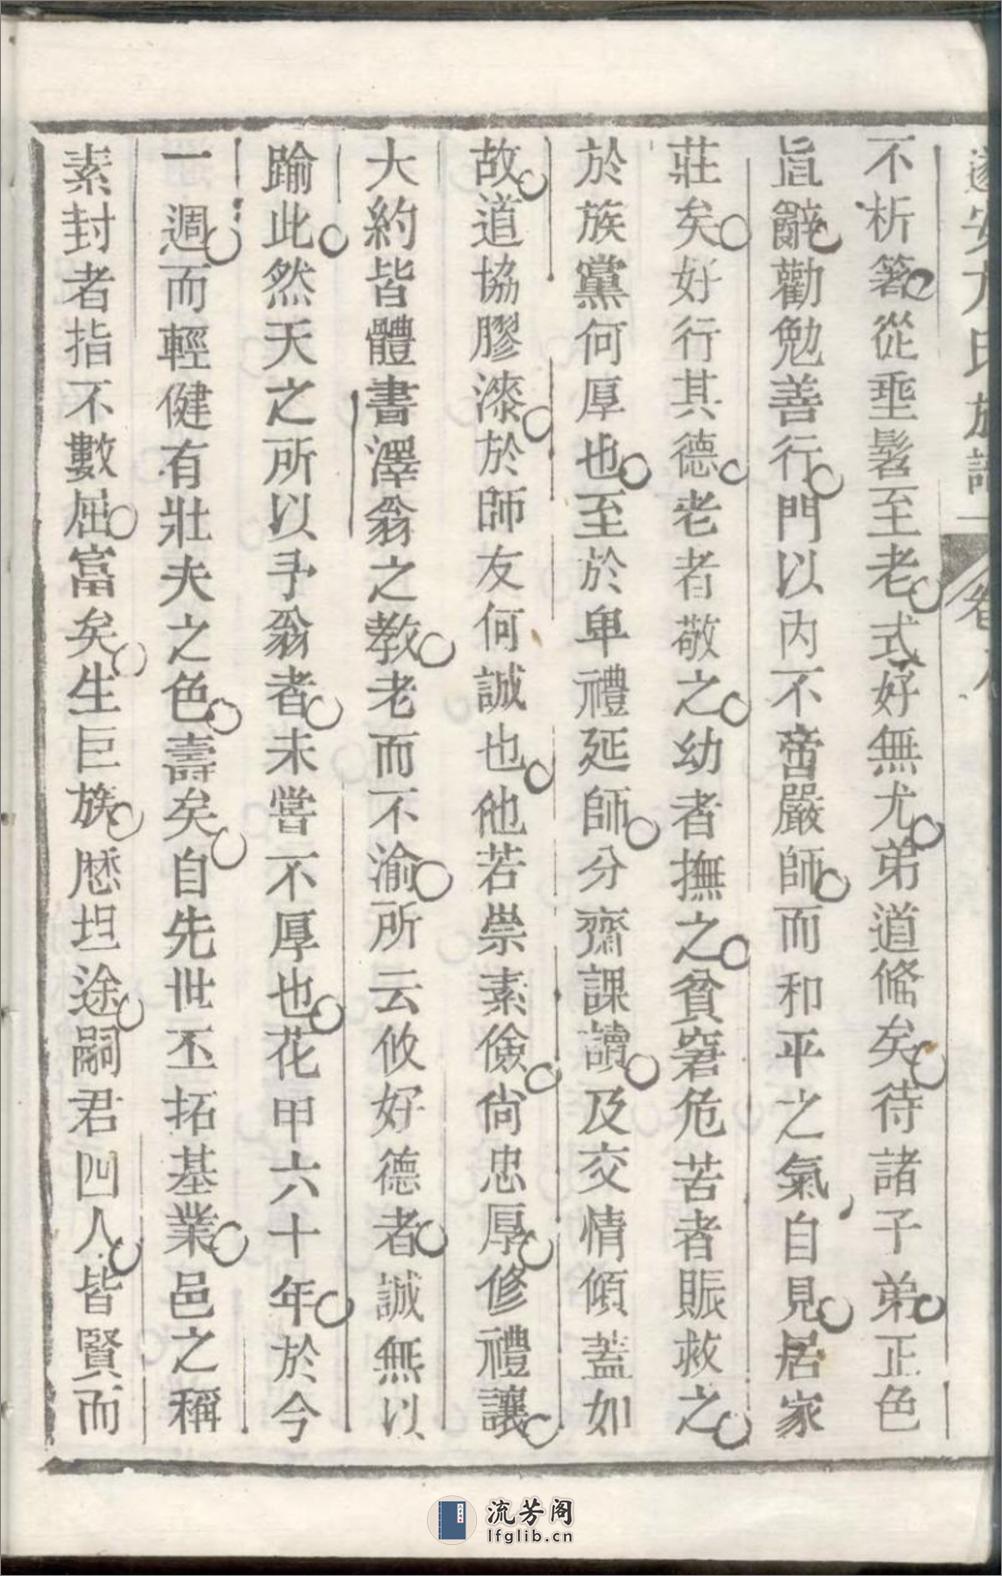 遂安方氏族譜
卷
不析箸從垂髫至老式好無尤弟道脩矣待諸子弟正色
直辭勸勉善行門以內不啻嚴師而和平之氣自見居家
莊矣好行其德老者敬之幼者撫之貧窘危苦者賑救之
於族黨何厚也至於卑禮延師分齋課讀及交情傾蓋如
故道協膠漆於師友何誠也他若崇素儉尙忠厚修禮讓
大約皆體書澤翁之教老而不渝所云攸好德者誠無以
踰此然天之所以予翁者未嘗不厚也花甲六十年於今
一週而輕健有壯夫之色壽矣自先世丕拓基業邑之稱
素封者指不數屈富矣生巨族歷坦途嗣君四人皆賢而
流芳阁
lfglib.cn